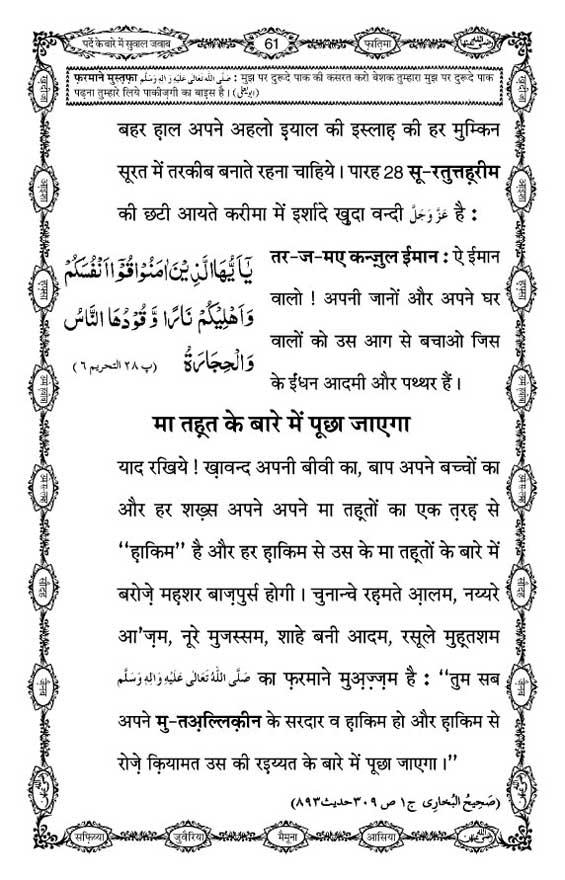 पर्दे के बारे में सुवाल जवाब
61
फ़ातिमा
फ़रमाने मुस्तफ़ा صَلَّى اللهُ تَعَالٰى عَلَيْهِ وَاٰلِهٖ وَسَلَّم : मुझ पर दुरूदे पाक की कसरत करो बेशक तुम्हारा मुझ पर दुरूदे पाक
पढ़ना तुम्हारे लिये पाकीज़गी का बाइस है। (ابو یعلٰی)
बहर हाल अपने अहलो इयाल की इस्लाह की हर मुम्किन
सूरत में तरकीब बनाते रहना चाहिये। पारह 28 सू-रतुत्तह़रीम
की छटी आयते करीमा में इर्शादे ख़ुदा वन्दी عَزَّ وَجَلَّ है :
يٰۤاَيُّهَا الَّذِيْنَ اٰمَنُوْا قُوْۤا اَنْفُسَكُمْ
وَ اَهْلِيْكُمْ نَارًا وَّ قُوْدُهَا النَّاسُ
وَ الْحِجَارَةُ (پ ۲۸ التحريم ٦)
तर-ज-मए कन्ज़ुल ईमान : ऐ ईमान
वालो ! अपनी जानों और अपने घर
वालों को उस आग से बचाओ जिस
के ईंधन आदमी और पथ्थर हैं।
मा तह़त के बारे में पूछा जाएगा
याद रखिये ! ख़ावन्द अपनी बीवी का, बाप अपने बच्चों का
और हर शख़्स अपने अपने मा तह़तों का एक त़रह़ से
‘‘ह़ाकिम’’ है और हर ह़ाकिम से उस के मा तह़तों के बारे में
बरोज़े मह़शर बाज़पुर्स होगी। चुनान्चे रहमते आ़लम, नय्यरे
आ'ज़म, नूरे मुजस्सम, शाहे बनी आदम, रसूले मुह़तशम
صَلَّى اللهُ تَعَالٰى عَلَيْهِ وَاٰلِهٖ وَسَلَّم का फ़रमाने मुअ़ज़्ज़म है : ‘‘तुम सब
अपने मु-तअ़ल्लिक़ीन के सरदार व ह़ाकिम हो और ह़ाकिम से
रोज़े क़ियामत उस की रइय्यत के बारे में पूछा जाएगा।’’
(صَحِيحُ البُخارِى ج١ ص ٣٠٩ حديث ٨٩٣)
सफ़िय्या
जुवैरिया
मैमूना
आसिया